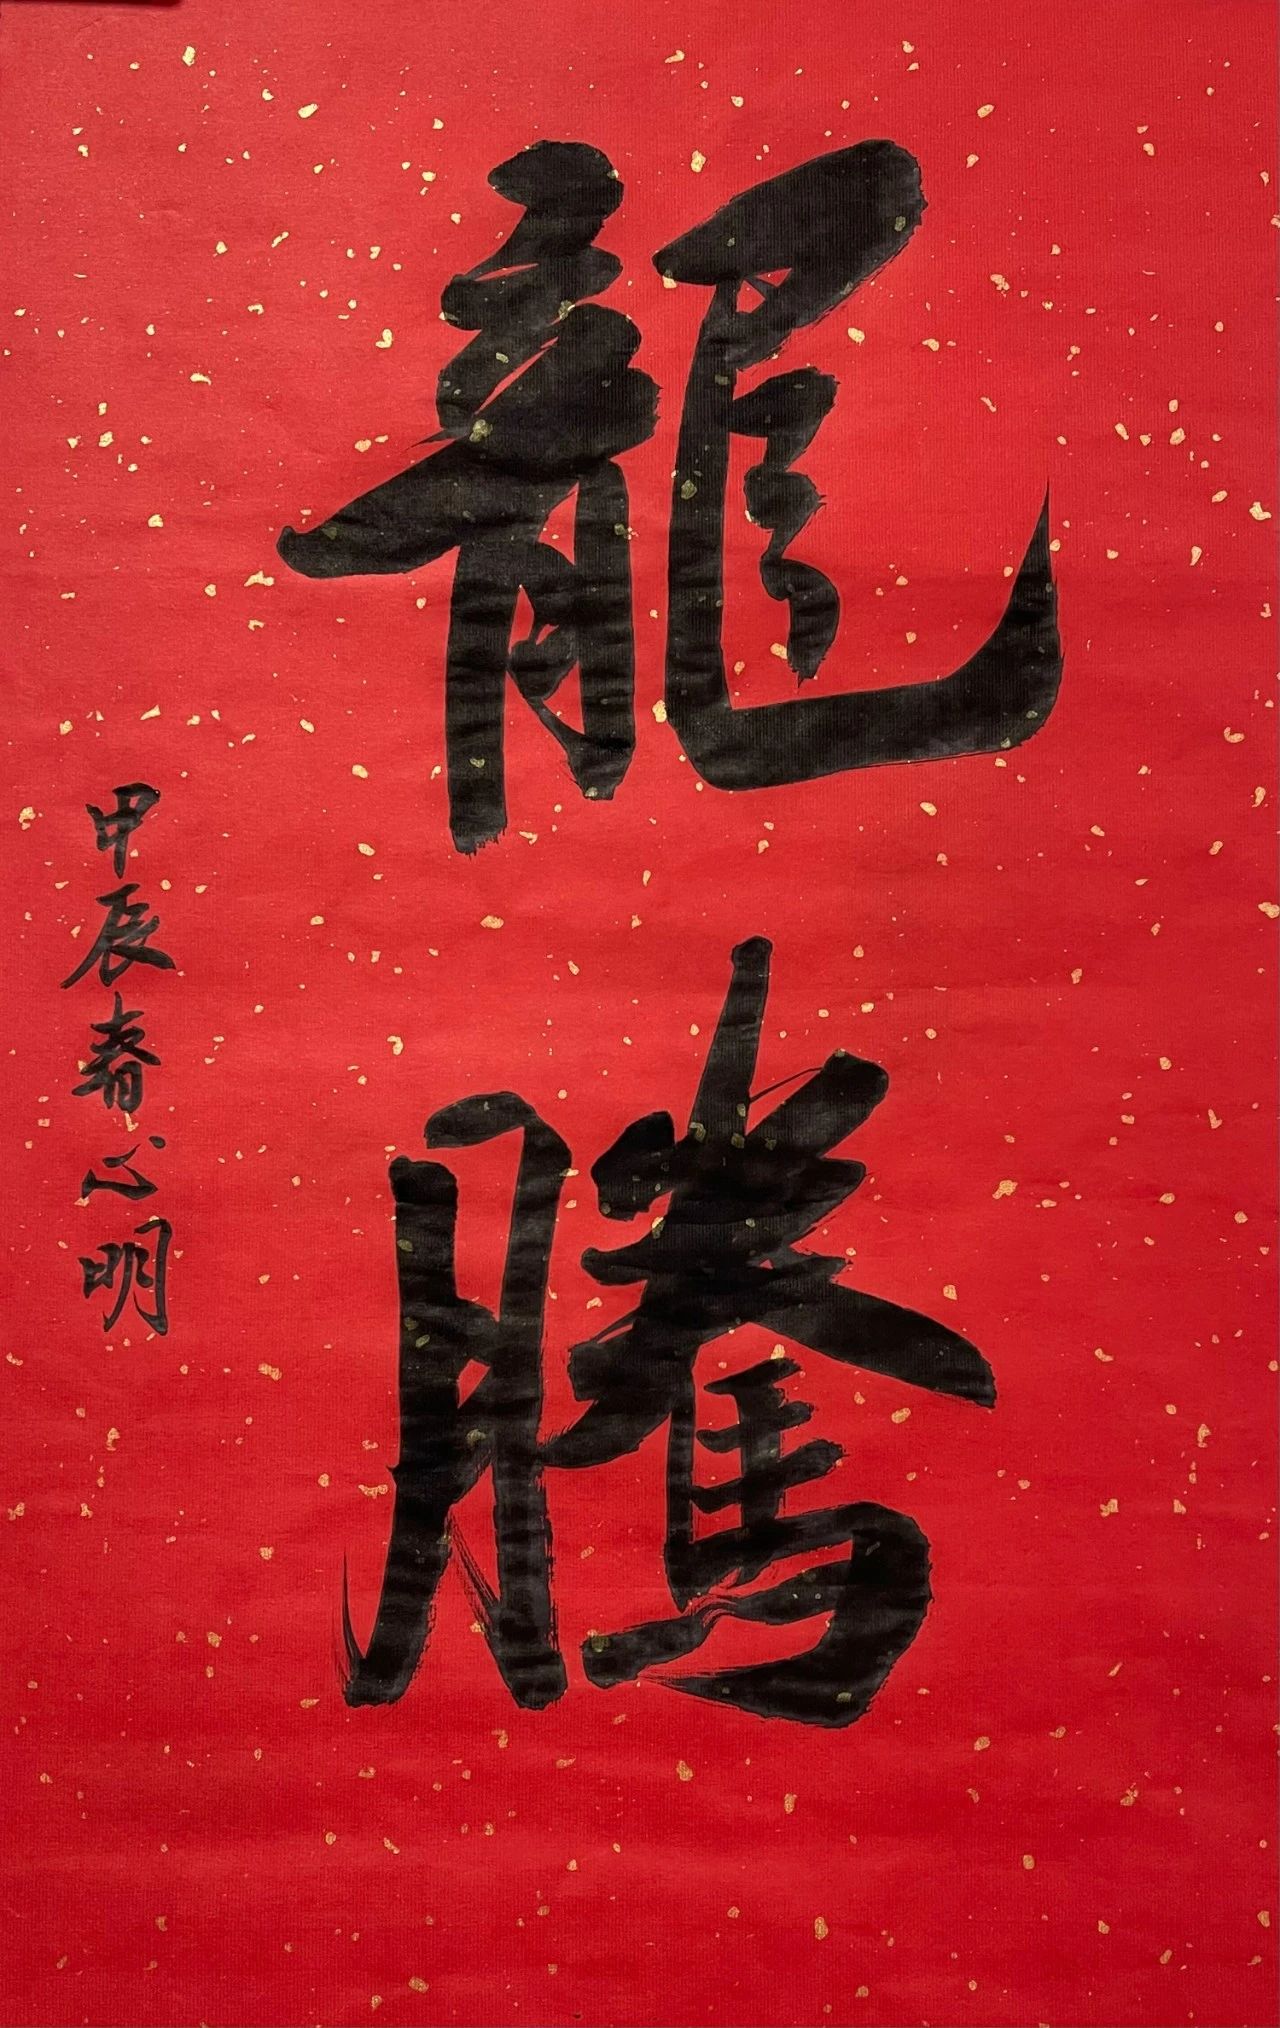 龍騰
甲辰春心明